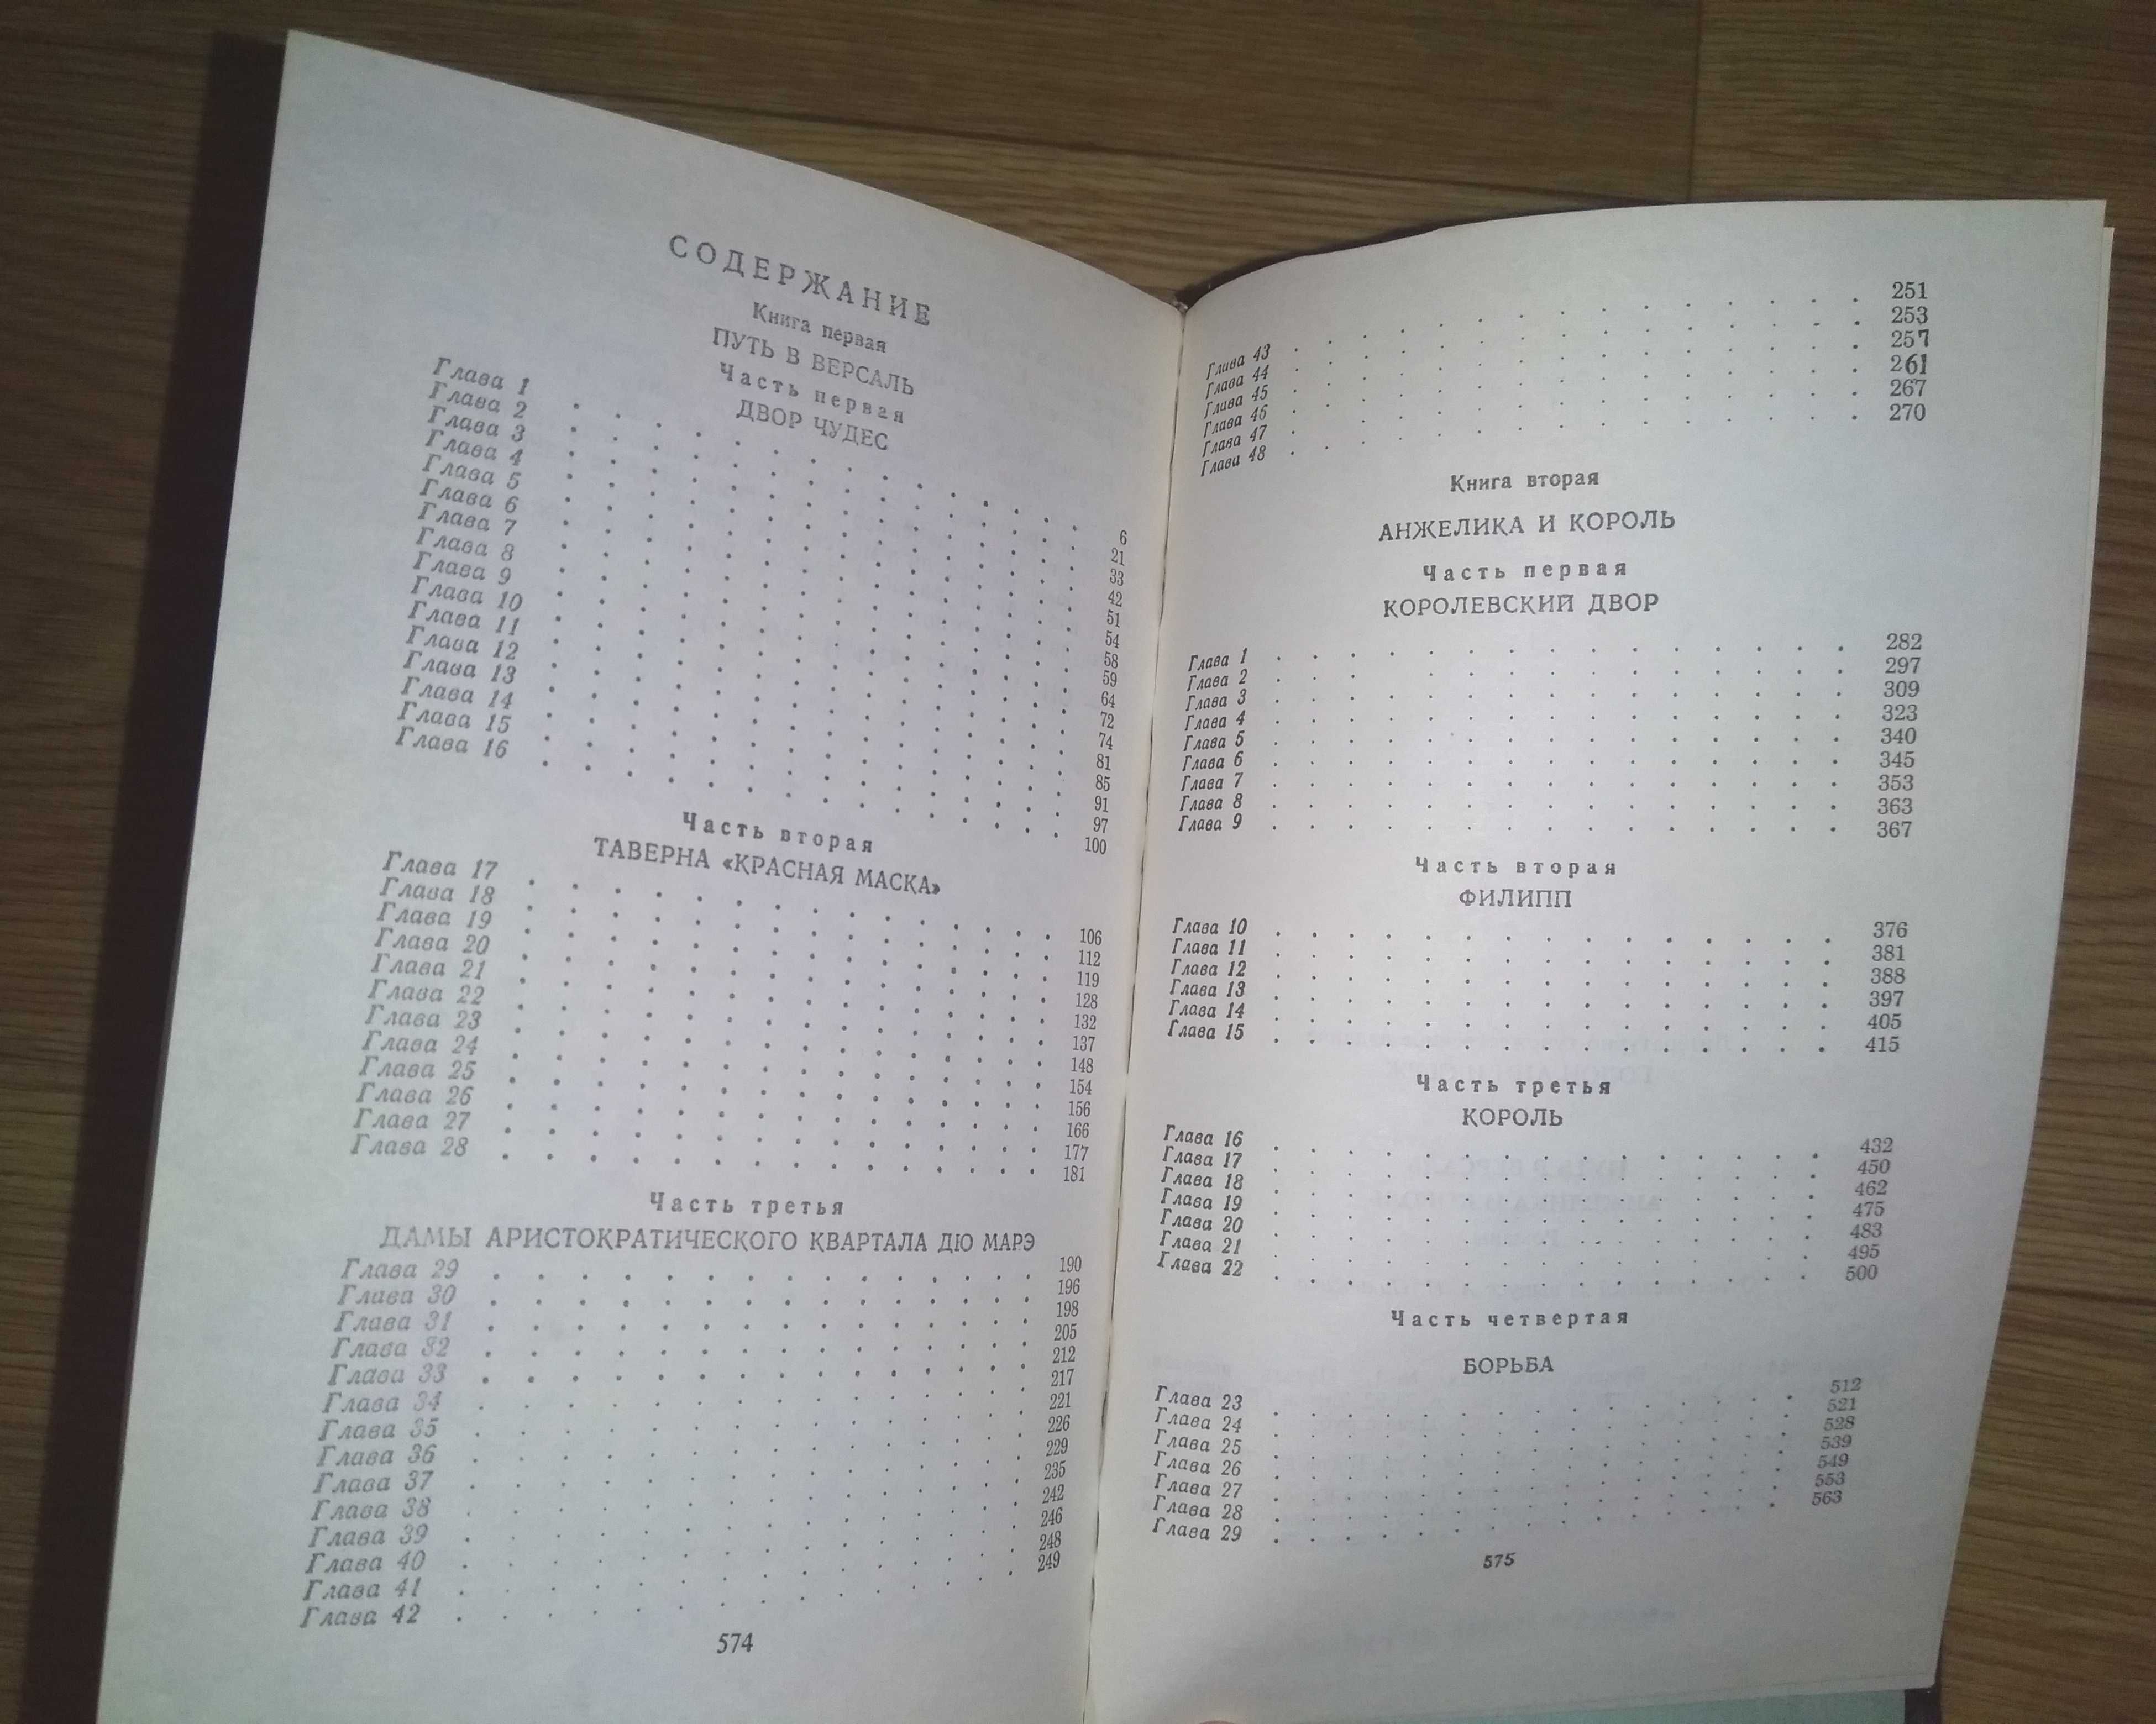 СОДЕРЖАНИЕ
Книга первая
ПУТЬ В ВЕРСАЛЬ
Часть первая
ДВОР ЧУДЕС
Глава 1 . . . . . . . . . . . . . 6
Глава 2 . . . . . . . . . . . . . 21
Глава 3 . . . . . . . . . . . . . 33
Глава 4 . . . . . . . . . . . . . 42
Глава 5 . . . . . . . . . . . . . 51
Глава 6 . . . . . . . . . . . . . 54
Глава 7 . . . . . . . . . . . . . 58
Глава 8 . . . . . . . . . . . . . 59
Глава 9 . . . . . . . . . . . . . 64
Глава 10 . . . . . . . . . . . . . 72
Глава 11 . . . . . . . . . . . . . 74
Глава 12 . . . . . . . . . . . . . 81
Глава 13 . . . . . . . . . . . . . 85
Глава 14 . . . . . . . . . . . . . 91
Глава 15 . . . . . . . . . . . . . 97
Глава 16 . . . . . . . . . . . . . 100
Часть вторая
ТАВЕРНА «КРАСНАЯ МАСКА»
Глава 17 . . . . . . . . . . . . . 106
Глава 18 . . . . . . . . . . . . . 112
Глава 19 . . . . . . . . . . . . . 119
Глава 20 . . . . . . . . . . . . . 128
Глава 21 . . . . . . . . . . . . . 132
Глава 22 . . . . . . . . . . . . . 137
Глава 23 . . . . . . . . . . . . . 148
Глава 24 . . . . . . . . . . . . . 154
Глава 25 . . . . . . . . . . . . . 156
Глава 26 . . . . . . . . . . . . . 166
Глава 27 . . . . . . . . . . . . . 177
Глава 28 . . . . . . . . . . . . . 181
Часть третья
ДАМЫ АРИСТОКРАТИЧЕСКОГО КВАРТАЛА ДЮ МАРЭ
Глава 29 . . . . . . . . . . . . . 190
Глава 30 . . . . . . . . . . . . . 196
Глава 31 . . . . . . . . . . . . . 198
Глава 32 . . . . . . . . . . . . . 205
Глава 33 . . . . . . . . . . . . . 212
Глава 34 . . . . . . . . . . . . . 217
Глава 35 . . . . . . . . . . . . . 221
Глава 36 . . . . . . . . . . . . . 226
Глава 37 . . . . . . . . . . . . . 229
Глава 38 . . . . . . . . . . . . . 235
Глава 39 . . . . . . . . . . . . . 242
Глава 40 . . . . . . . . . . . . . 246
Глава 41 . . . . . . . . . . . . . 248
Глава 42 . . . . . . . . . . . . . 249
574
Глава 43 . . . . . . . . . . . . . 251
Глава 44 . . . . . . . . . . . . . 253
Глава 45 . . . . . . . . . . . . . 257
Глава 46 . . . . . . . . . . . . . 261
Глава 47 . . . . . . . . . . . . . 267
Глава 48 . . . . . . . . . . . . . 270
Книга вторая
АНЖЕЛИКА И КОРОЛЬ
Часть первая
КОРОЛЕВСКИЙ ДВОР
Глава 1 . . . . . . . . . . . . . 282
Глава 2 . . . . . . . . . . . . . 297
Глава 3 . . . . . . . . . . . . . 309
Глава 4 . . . . . . . . . . . . . 323
Глава 5 . . . . . . . . . . . . . 340
Глава 6 . . . . . . . . . . . . . 345
Глава 7 . . . . . . . . . . . . . 353
Глава 8 . . . . . . . . . . . . . 363
Глава 9 . . . . . . . . . . . . . 367
Часть вторая
ФИЛИПП
Глава 10 . . . . . . . . . . . . . 376
Глава 11 . . . . . . . . . . . . . 381
Глава 12 . . . . . . . . . . . . . 388
Глава 13 . . . . . . . . . . . . . 397
Глава 14 . . . . . . . . . . . . . 405
Глава 15 . . . . . . . . . . . . . 415
Часть третья
КОРОЛЬ
Глава 16 . . . . . . . . . . . . . 432
Глава 17 . . . . . . . . . . . . . 450
Глава 18 . . . . . . . . . . . . . 462
Глава 19 . . . . . . . . . . . . . 475
Глава 20 . . . . . . . . . . . . . 483
Глава 21 . . . . . . . . . . . . . 495
Глава 22 . . . . . . . . . . . . . 500
Часть четвертая
БОРЬБА
Глава 23 . . . . . . . . . . . . . 512
Глава 24 . . . . . . . . . . . . . 521
Глава 25 . . . . . . . . . . . . . 528
Глава 26 . . . . . . . . . . . . . 539
Глава 27 . . . . . . . . . . . . . 549
Глава 28 . . . . . . . . . . . . . 553
Глава 29 . . . . . . . . . . . . . 563
575